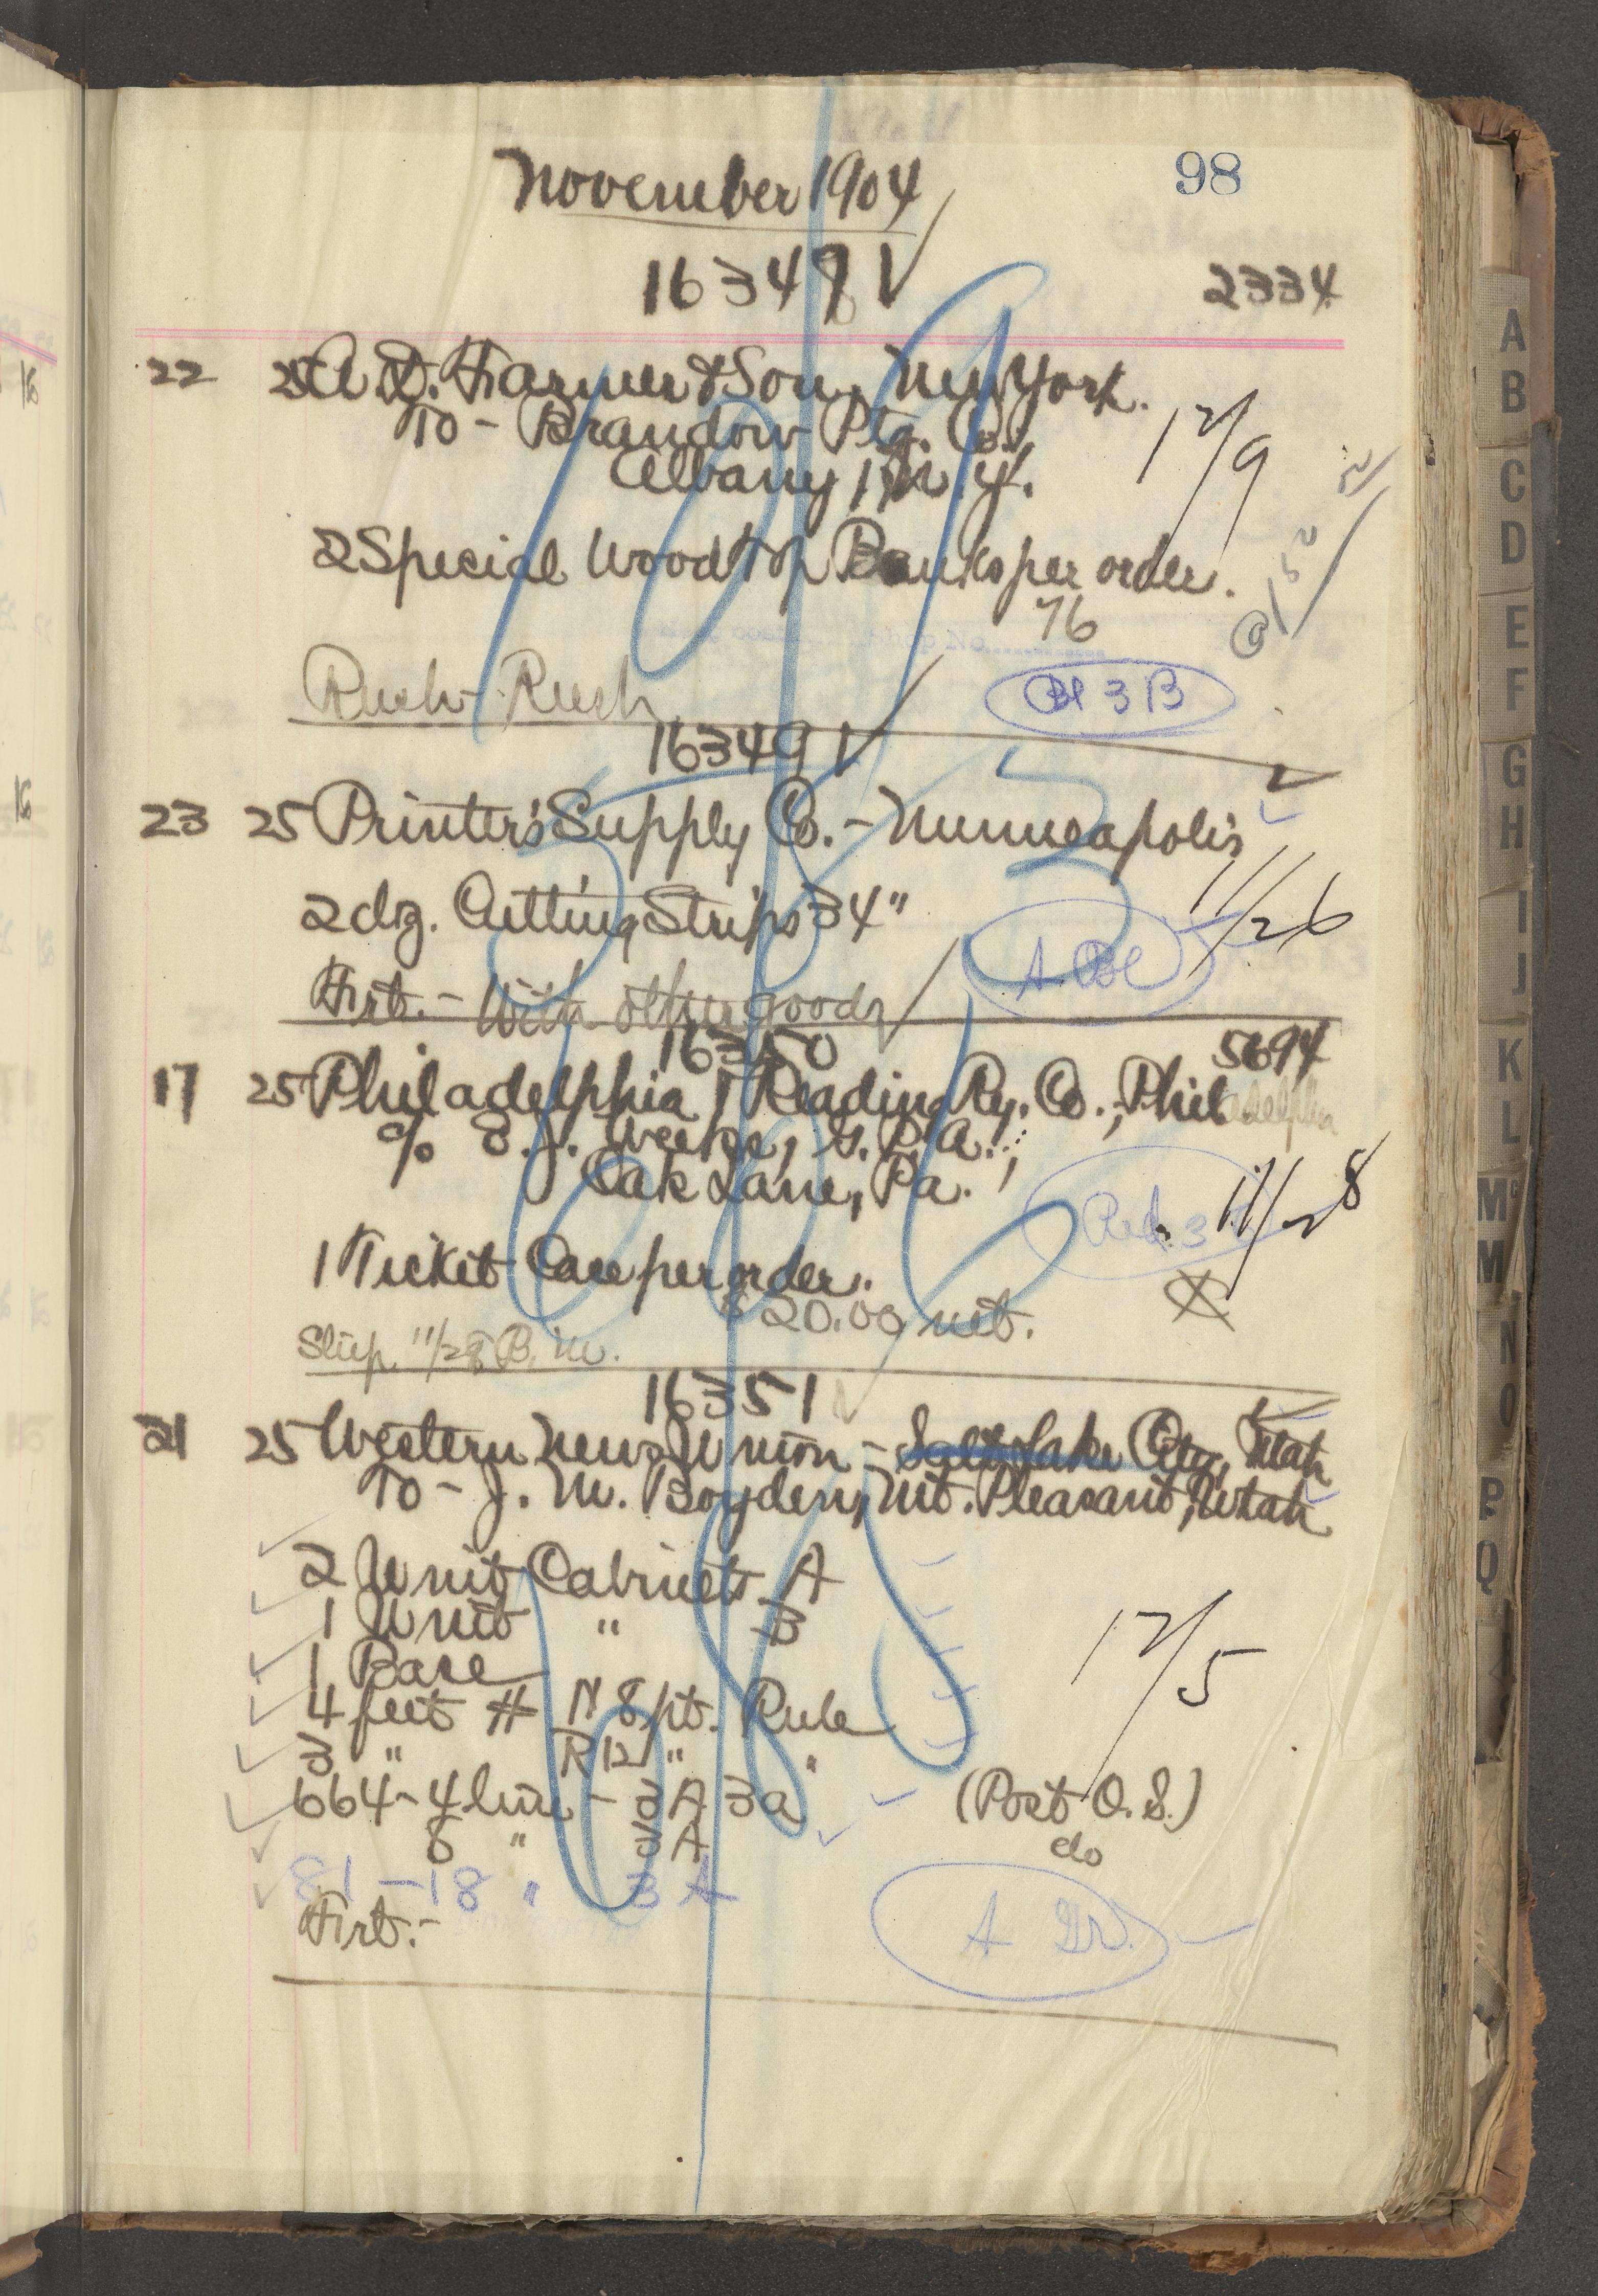 98
November 1904
16348 ✓ 2334
22 25 A. D. Farmer & Son, New York.
To - Brandow Ptg. Co.,
Albany, N.Y.
12/9
2 Special Wood Top Banks per order.
76
Rush - Rush
3 B
16349 ✓
23 25 Printer's Supply Co. - Minneapolis
2 dz. Cutting Strips 34"
11/26
Frt. - With other goods
16350 5694
17 25 Philadelphia & Reading Ry. Co., Philadelphia
c/o E. J. Weeks, G. P. A.,
Oak Lane, Pa.
11/28
1 Ticket Case per order.
$20.00 net.
Ship. 11/28 B. M.
16351 ✓
21 25 Western News Union - Salt Lake City, Utah
To - J. M. Boyden, Mt. Pleasant, Utah
2 Unit Cabinets A
1 Unit " B
1 Base
12/5
4 feet # 118 pt. Rule
2 " R 12 " "
664 - 4 line - 2 A 3a (Port O. S.)
8 " 2 A do
81 - 18 " 3 A
Frt. -
A Gr.
A
B
C
D
E
F
G
H
I
J
K
L
M
M
N
O
P
Q